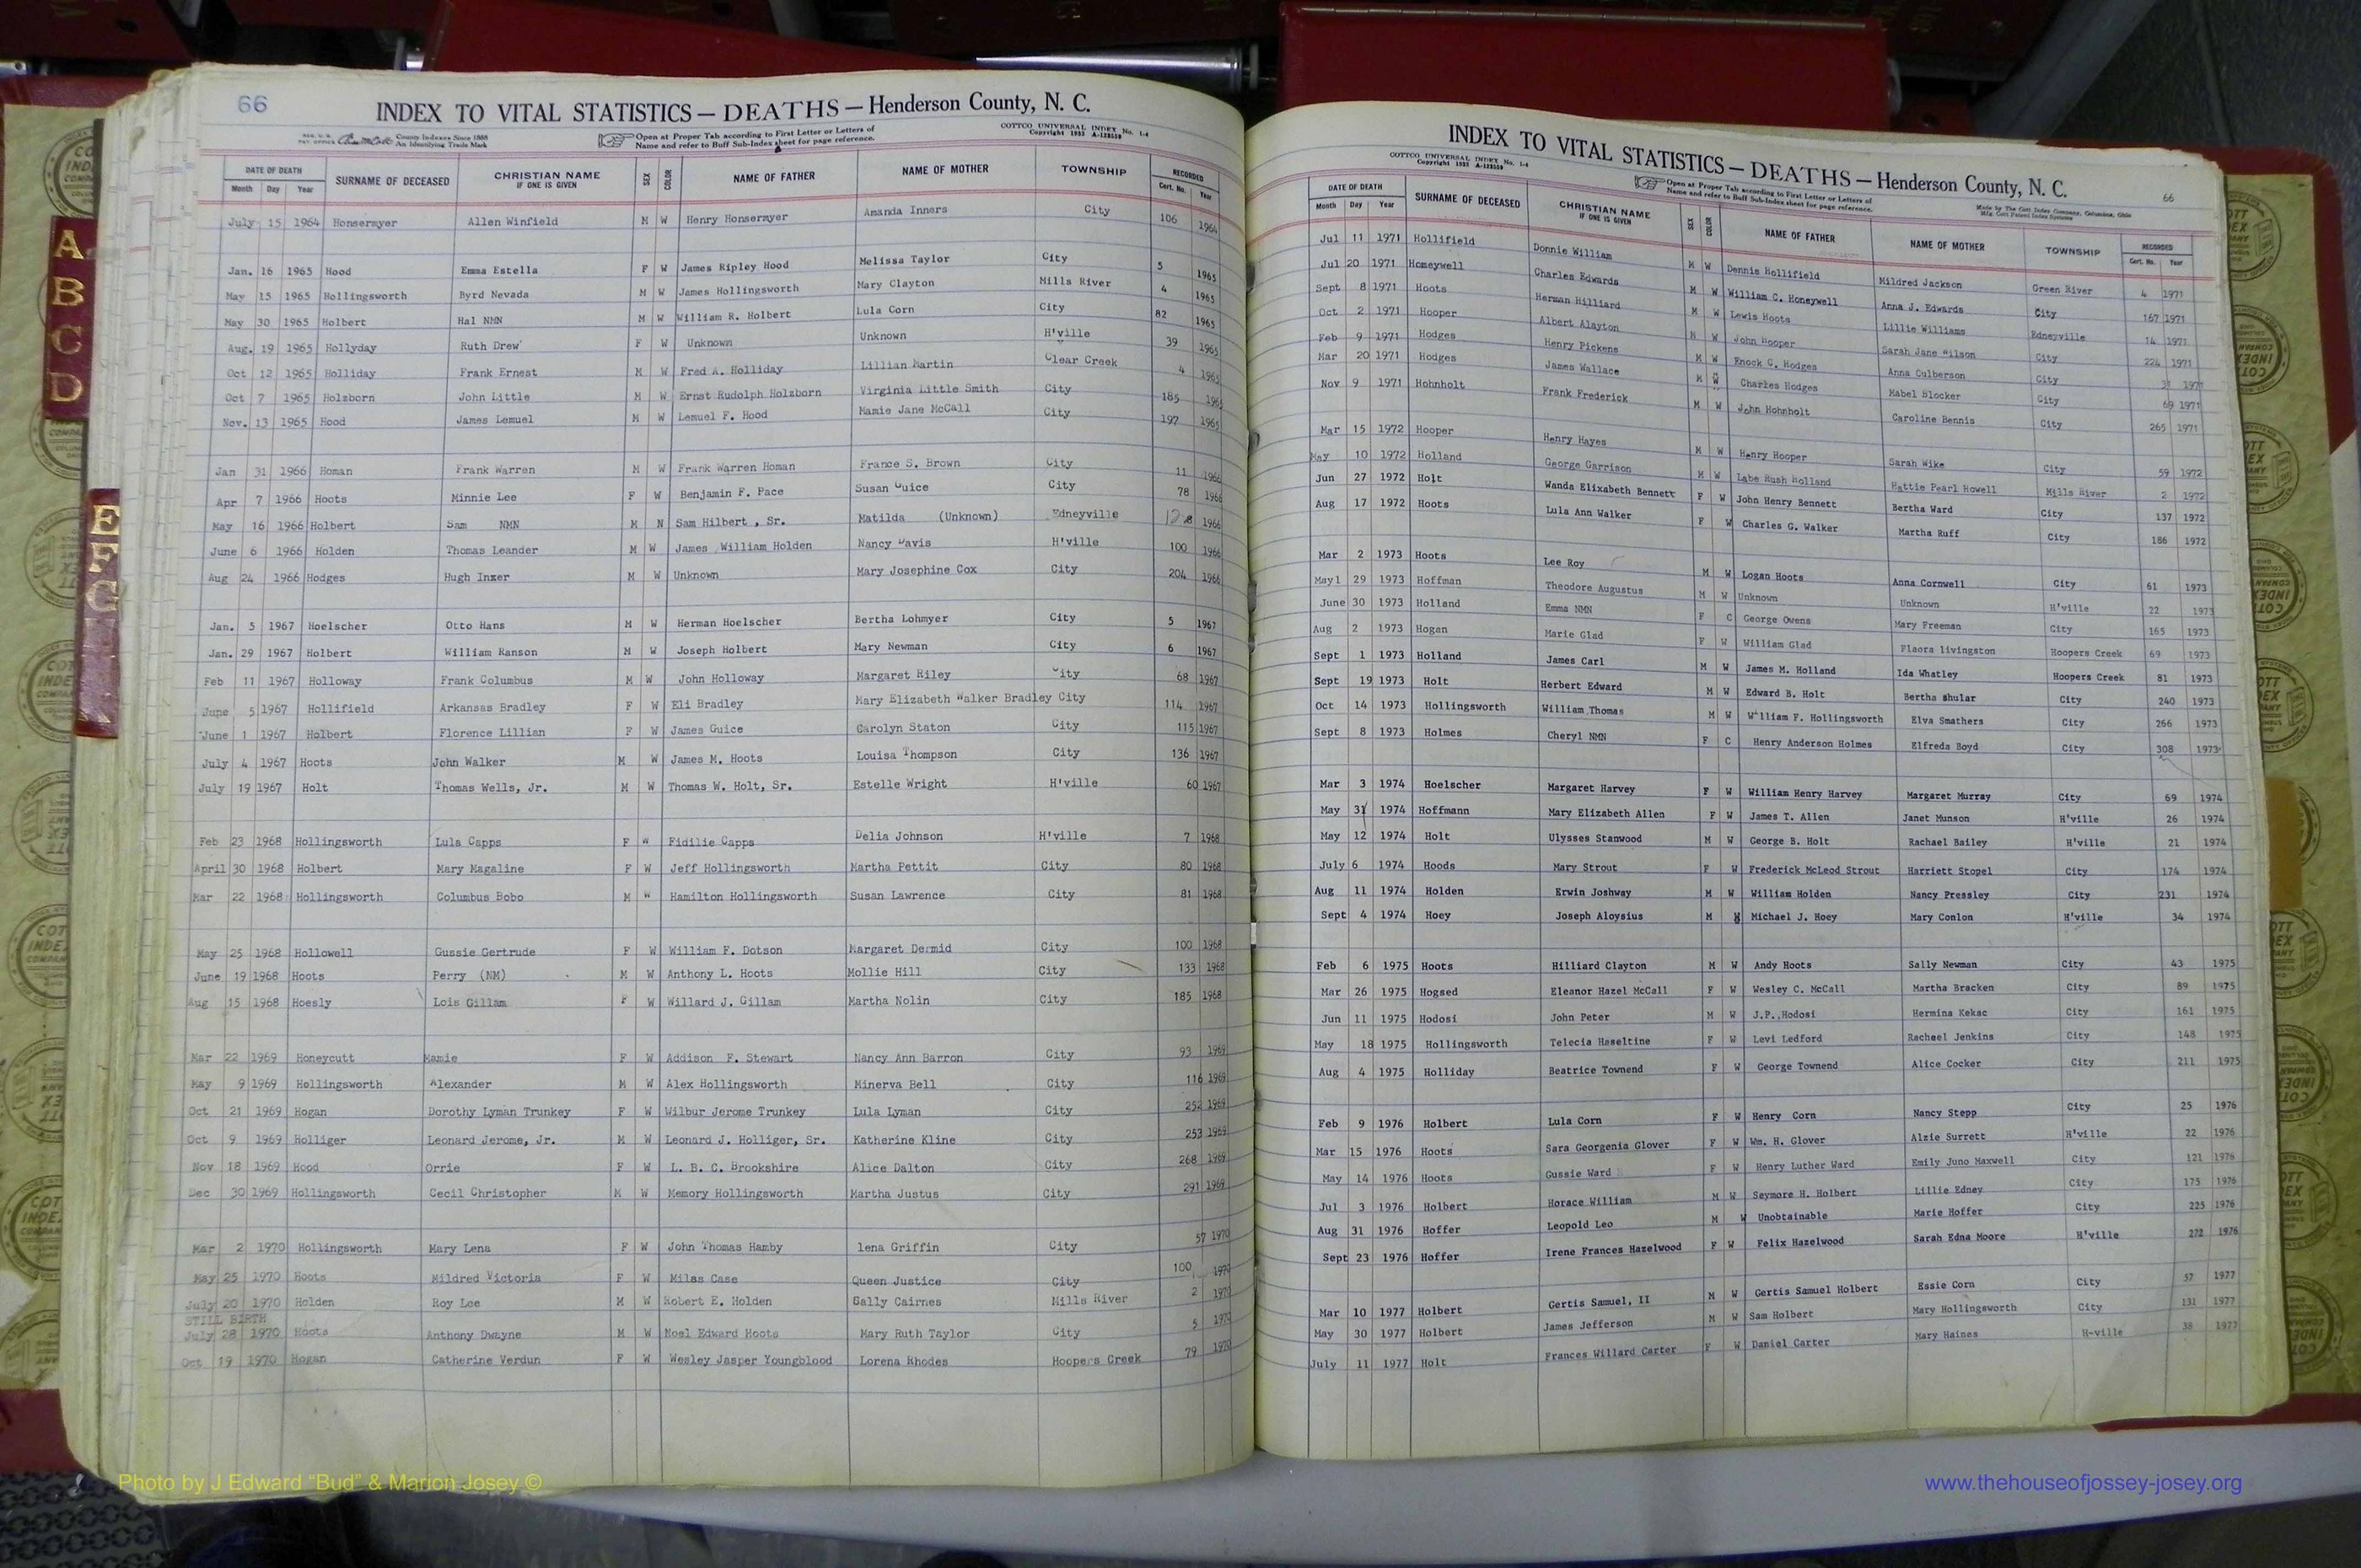 66
INDEX TO VITAL STATISTICS — DEATHS — Henderson County, N. C.
County Indexes Since 1888
An Identifying Trade Mark
Open at Proper Tab according to First Letter or Letters of
Name and refer to Buff Sub-Index sheet for page reference.
COTTCO UNIVERSAL INDEX No. 1-4
DATE OF DEATH Month Day Year SURNAME OF DECEASED CHRISTIAN NAME IF ONE IS GIVEN SEX COLOR NAME OF FATHER NAME OF MOTHER TOWNSHIP RECORDED Cert. No. Year
July 15 1964 Honsermyer Allen Winfield M W Henry Honsermyer Amanda Inners City 106 1964
Jan. 16 1965 Hood Emma Estella F W James Ripley Hood Melissa Taylor City 5 1965
May 15 1965 Hollingsworth Byrd Nevada M W James Hollingsworth Mary Clayton Mills River 4 1965
May 30 1965 Holbert Hal NMN M W William R. Holbert Lula Corn City 82 1965
Aug. 19 1965 Hollyday Ruth Drew F W Unknown Unknown H'ville 39 1965
Oct 12 1965 Holliday Frank Ernest M W Fred A. Holliday Lillian Martin Clear Creek 4 1965
Oct 7 1965 Holzborn John Little M W Ernst Rudolph Holzborn Virginia Little Smith City 185 1965
Nov. 13 1965 Hood James Lemuel M W Lemuel F. Hood Mamie Jane McCall City 197 1965
Jan 31 1966 Homan Frank Warren M W Frank Warren Homan France S. Brown City 11 1966
Apr 7 1966 Hoots Minnie Lee F W Benjamin F. Pace Susan Guice City 78 1966
May 16 1966 Holbert Sam NMN M N Sam Hilbert , Sr. Matilda (Unknown) Edneyville 128 1966
June 6 1966 Holden Thomas Leander M W James William Holden Nancy Davis H'ville 100 1966
Aug 24 1966 Hodges Hugh Inxer M W Unknown Mary Josephine Cox City 204 1966
Jan. 5 1967 Hoelscher Otto Hans M W Herman Hoelscher Bertha Lohmyer City 5 1967
Jan. 29 1967 Holbert William Ranson M W Joseph Holbert Mary Newman City 6 1967
Feb 11 1967 Holloway Frank Columbus M W John Holloway Margaret Riley City 68 1967
June 5 1967 Hollifield Arkansas Bradley F W Eli Bradley Mary Elizabeth Walker Bradley City 114 1967
June 1 1967 Holbert Florence Lillian F W James Guice Carolyn Staton City 115 1967
July 4 1967 Hoots John Walker M W James M. Hoots Louisa Thompson City 136 1967
July 19 1967 Holt Thomas Wells, Jr. M W Thomas W. Holt, Sr. Estelle Wright H'ville 60 1967
Feb 23 1968 Hollingsworth Lula Capps F W Fidilie Capps Delia Johnson H'ville 7 1968
April 30 1968 Holbert Mary Magaline F W Jeff Hollingsworth Martha Pettit City 80 1968
Mar 22 1968 Hollingsworth Columbus Bobo M W Hamilton Hollingsworth Susan Lawrence City 81 1968
May 25 1968 Hollowell Gussie Gertrude F W William F. Dotson Margaret Dermid City 100 1968
June 19 1968 Hoots Perry (NM) M W Anthony L. Hoots Mollie Hill City 133 1968
Aug 15 1968 Hoesly Lois Gillam F W Willard J. Gillam Martha Nolin City 185 1968
Mar 22 1969 Honeycutt Mamie F W Addison F. Stewart Nancy Ann Barron City 93 1969
May 9 1969 Hollingsworth Alexander M W Alex Hollingsworth Minerva Bell City 116 1969
Oct 21 1969 Hogan Dorothy Lyman Trunkey F W Wilbur Jerome Trunkey Lula Lyman City 252 1969
Oct 9 1969 Holliger Leonard Jerome, Jr. M W Leonard J. Holliger, Sr. Katherine Kline City 253 1969
Nov 18 1969 Hood Orrie F W L. B. C. Brookshire Alice Dalton City 268 1969
Dec 30 1969 Hollingsworth Cecil Christopher M W Memory Hollingsworth Martha Justus City 291 1969
Mar 2 1970 Hollingsworth Mary Lena F W John Thomas Hamby lena Griffin City 57 1970
May 25 1970 Hoots Mildred Victoria F W Milas Case Queen Justice City 100 1970
July 20 1970 Holden Roy Lee M W Robert E. Holden Sally Cairnes Mills River 2 1970
STILL BIRTH
July 28 1970 Hoots Anthony Dwayne M W Noel Edward Hoots Mary Ruth Taylor City 5 1970
Oct 19 1970 Hogan Catherine Verdun F W Wesley Jasper Youngblood Lorena Rhodes Hoopers Creek 79 1970
INDEX TO VITAL STATISTICS — DEATHS — Henderson County, N. C.
COTTCO UNIVERSAL INDEX No. 1-4
Open at Proper Tab according to First Letter or Letters of
Name and refer to Buff Sub-Index sheet for page reference.
Made by The Cott Index Company, Columbus, Ohio
66
DATE OF DEATH Month Day Year SURNAME OF DECEASED CHRISTIAN NAME IF ONE IS GIVEN SEX COLOR NAME OF FATHER NAME OF MOTHER TOWNSHIP RECORDED Cert. No. Year
Jul 11 1971 Hollifield Donnie William M W Dennis Hollifield Mildred Jackson Green River 4 1971
Jul 20 1971 Homeywell Charles Edwards M W William C. Honeywell Anna J. Edwards City 167 1971
Sept 8 1971 Hoots Herman Hilliard M W Lewis Hoots Lillie Williams Edneyville 14 1971
Oct 2 1971 Hooper Albert Alayton M W John Hooper Sarah Jane Wilson City 224 1971
Feb 9 1971 Hodges Henry Pickens M W Enock C. Hodges Anna Culberson City 1971
Mar 20 1971 Hodges James Wallace M W Charles Hodges Mabel Blocker City 69 1971
Nov 9 1971 Hohnholt Frank Frederick M W John Hohnholt Caroline Bennis City 265 1971
Mar 15 1972 Hooper Henry Hayes M W Henry Hooper Sarah Wike City 59 1972
May 10 1972 Holland George Garrison M W Labe Rush Holland Hattie Pearl Howell Mills River 2 1972
Jun 27 1972 Holt Wanda Elixabeth Bennett F W John Henry Bennett Bertha Ward City 137 1972
Aug 17 1972 Hoots Lula Ann Walker F W Charles G. Walker Martha Ruff City 186 1972
Mar 2 1973 Hoots Lee Roy M W Logan Hoots Anna Cornwell City 61 1973
May1 29 1973 Hoffman Theodore Augustus M W Unknown Unknown H'ville 22 1973
June 30 1973 Holland Emma NMN F C George Owens Mary Freeman City 165 1973
Aug 2 1973 Hogan Marie Glad F W William Glad Flaora livingston Hoopers Creek 69 1973
Sept 1 1973 Holland James Carl M W James M. Holland Ida Whatley Hoopers Creek 81 1973
Sept 19 1973 Holt Herbert Edward M W Edward B. Holt Bertha Shular City 240 1973
Oct 14 1973 Hollingsworth William Thomas M W William F. Hollingsworth Elva Smathers City 266 1973
Sept 8 1973 Holmes Cheryl NMN F C Henry Anderson Holmes Elfreda Boyd City 308 1973
Mar 3 1974 Hoelscher Margaret Harvey F W William Henry Harvey Margaret Murray City 69 1974
May 31 1974 Hoffmann Mary Elizabeth Allen F W James T. Allen Janet Munson H'ville 26 1974
May 12 1974 Holt Ulysses Stanwood M W George B. Holt Rachael Bailey H'ville 21 1974
July 6 1974 Hoods Mary Strout F W Frederick McLeod Strout Harriett Stopel City 174 1974
Aug 11 1974 Holden Erwin Joshway M W William Holden Nancy Pressley City 231 1974
Sept 4 1974 Hoey Joseph Aloysius M W Michael J. Hoey Mary Conlon H'ville 34 1974
Feb 6 1975 Hoots Hilliard Clayton M W Andy Hoots Sally Newman City 43 1975
Mar 26 1975 Hogsed Eleanor Hazel McCall F W Wesley C. McCall Martha Bracken City 89 1975
Jun 11 1975 Hodosi John Peter M W J.P. Hodosi Hermina Kekac City 161 1975
May 18 1975 Hollingsworth Telecia Haseltine F W Levi Ledford Rachael Jenkins City 148 1975
Aug 4 1975 Holliday Beatrice Townend F W George Townend Alice Cocker City 211 1975
Feb 9 1976 Holbert Lula Corn F W Henry Corn Nancy Stepp City 25 1976
Mar 15 1976 Hoots Sara Georgenia Glover F W Wm. H. Glover Alzie Surrett H'ville 22 1976
May 14 1976 Hoots Gussie Ward F W Henry Luther Ward Emily Juno Maxwell City 121 1976
Jul 3 1976 Holbert Horace William M W Seymore H. Holbert Lillie Edney City 175 1976
Aug 31 1976 Hoffer Leopold Leo M W Unobtainable Marie Hoffer City 225 1976
Sept 23 1976 Hoffer Irene Frances Hazelwood F W Felix Hazelwood Sarah Edna Moore H'ville 272 1976
Mar 10 1977 Holbert Gertis Samuel, II M W Gertis Samuel Holbert Essie Corn City 57 1977
May 30 1977 Holbert James Jefferson M W Sam Holbert Mary Hollingsworth City 131 1977
July 11 1977 Holt Frances Willard Carter F W Daniel Carter Mary Haines H-ville 38 1977
A
B
C
D
E
F
G
Photo by J Edward “Bud” & Marion Josey ©
www.thehouseofjossey-josey.org